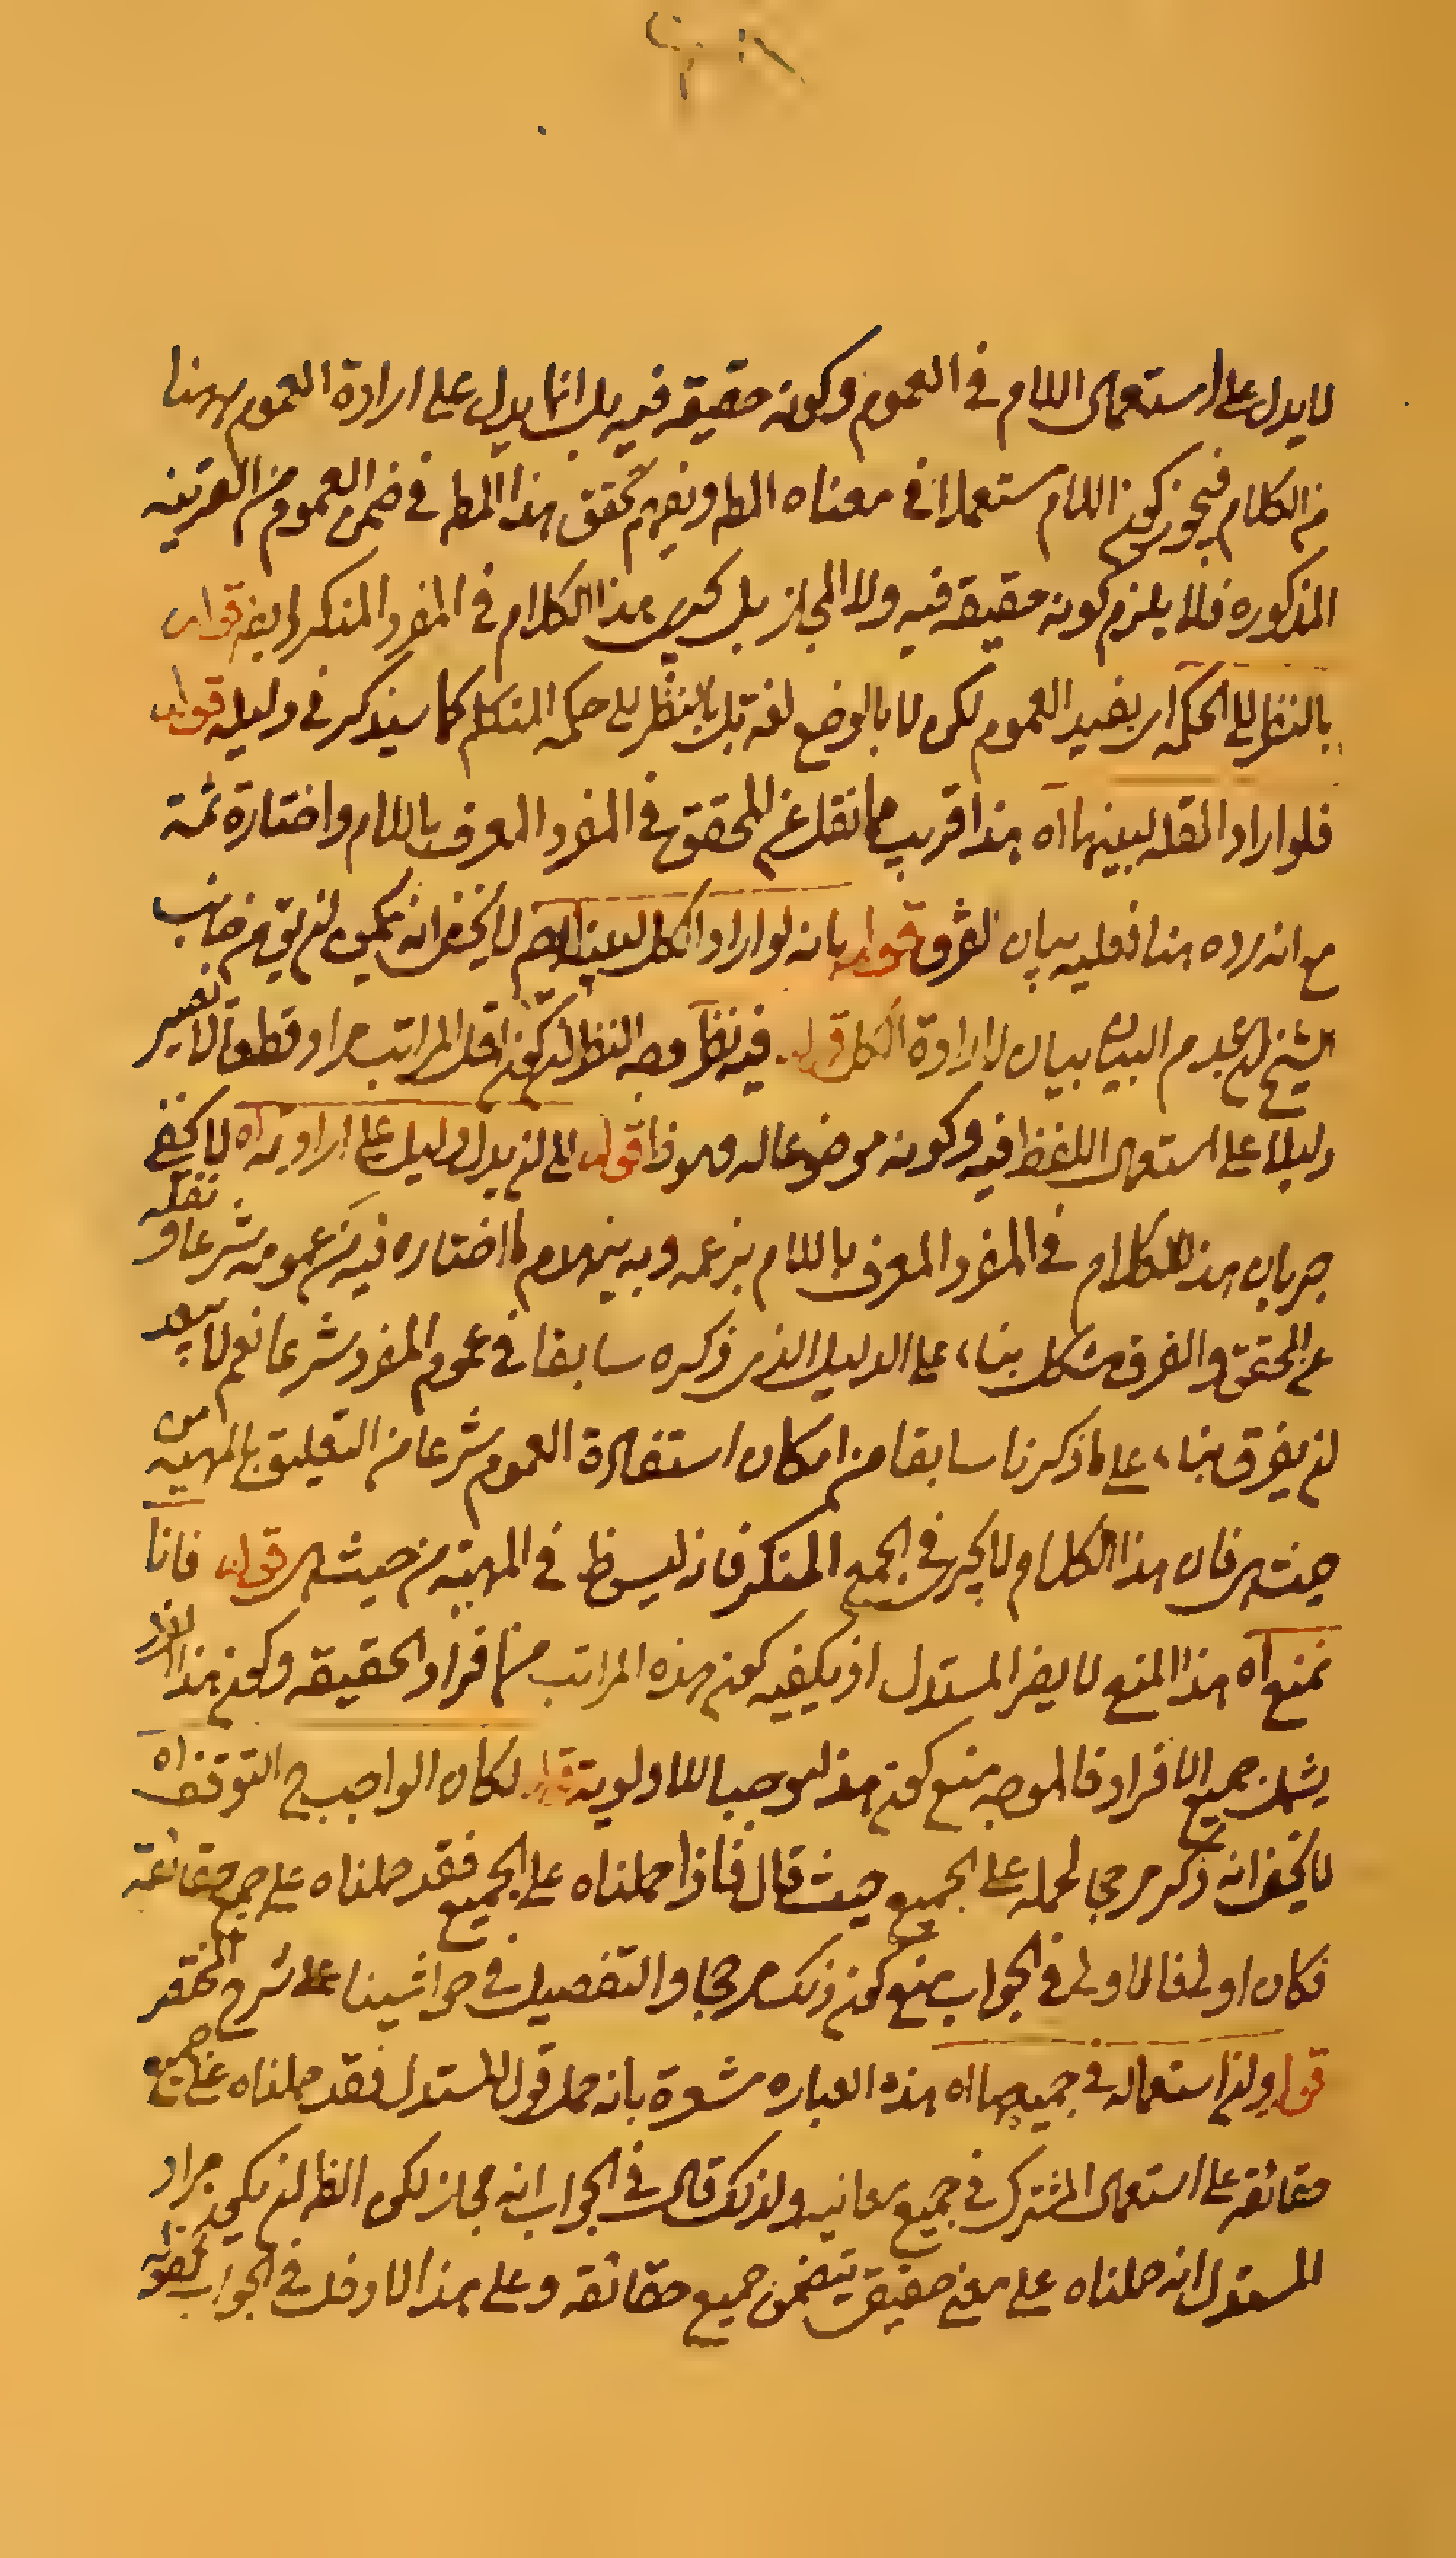 لا يدل على استعمال اللام في العموم وكونه حقيقة فيه بل انما يدل على ارادة العموم ههنا
من الكلام فيجوز كون اللام مستعملا في معناه المط ويفهم تحقق هذا المط في ضمن العموم من القرينة
المذكورة فلا يلزم كونه حقيقة فيه ولا المجاز بل يجرى هذا الكلام في المفرد المنكر ايضا قوله
بالنظر الى الحكمة اى يفيد العموم لكن لا بالوضع لغة بل بالنظر الى حكمة المتكلم كما سيذكر في دليله قوله
فلو اراد القلة لبينها اه هذا قريب مما نقل عن المحقق في المفرد المعرف باللام واختاره ثمة
مع انه رده هنا فعليه بيان الفرق قوله بانه لو اراد الكل لبينه ايضا لا يخفى انه يمكن ان يق من جانب
الشيخ ان عدم البيان بيان لارادة الكل قوله فيه نظر وجه النظر ان كون اقل المراتب مراد قطعا لا يصير
دليلا على استعمال اللفظ فيه وكونه موضوعا له وهو ذا قوله الى ان يدل دليل على ارادته اه لا يخفى
جريان هذا الكلام في المفرد المعرف باللام بزعمه وبه ينهدم ما اختاره فيه من عمومه شرعا و نقله
عن المحقق والفرق مشكل بناء على الدليل الذي ذكره سابقا في عموم المفرد شرعا نعم لا يبعد
ان يفرق بناء على ما ذكرنا سابقا من امكان استفادة العموم شرعا من التعليق بالمهية من
حيث هي فان هذا الكلام لا يجرى في الجمع المنكر فانه ليس ظ في المهية من حيث هي قوله فانا
نمنع اه هذا المنع لا يضر المستدل اذ يكفيه كون هذه المراتب من افراد الحقيقة وكون هذا الفرد
يشمل جميع الافراد فالموجه منع كون هذا موجبا للاولوية قوله لكان الواجب ح التوقف اه
لا يخفى انه ذكر مرجحا لحمله على الجميع حيث قال فاذا حملناه على الجميع فقد حملناه على جميع حقائقه
فكان اولى فالاولى في الجواب منع كون ذلك مرجحا والتفصيل في حواشينا على شرح المختصر
قوله ولان استعماله في جميعها اه هذه العبارة مشعرة بانه حمل قول المستدل فقد حملناه على جميع
حقائقه على استعمال المشترك في جميع معانيه ولذلك قال في الجواب انه مجاز لكن الظ ان يكون مراد
المستدل انه حملناه على معنى حقيقى يتضمن جميع حقائقه وعلى هذا لا دخل في الجواب